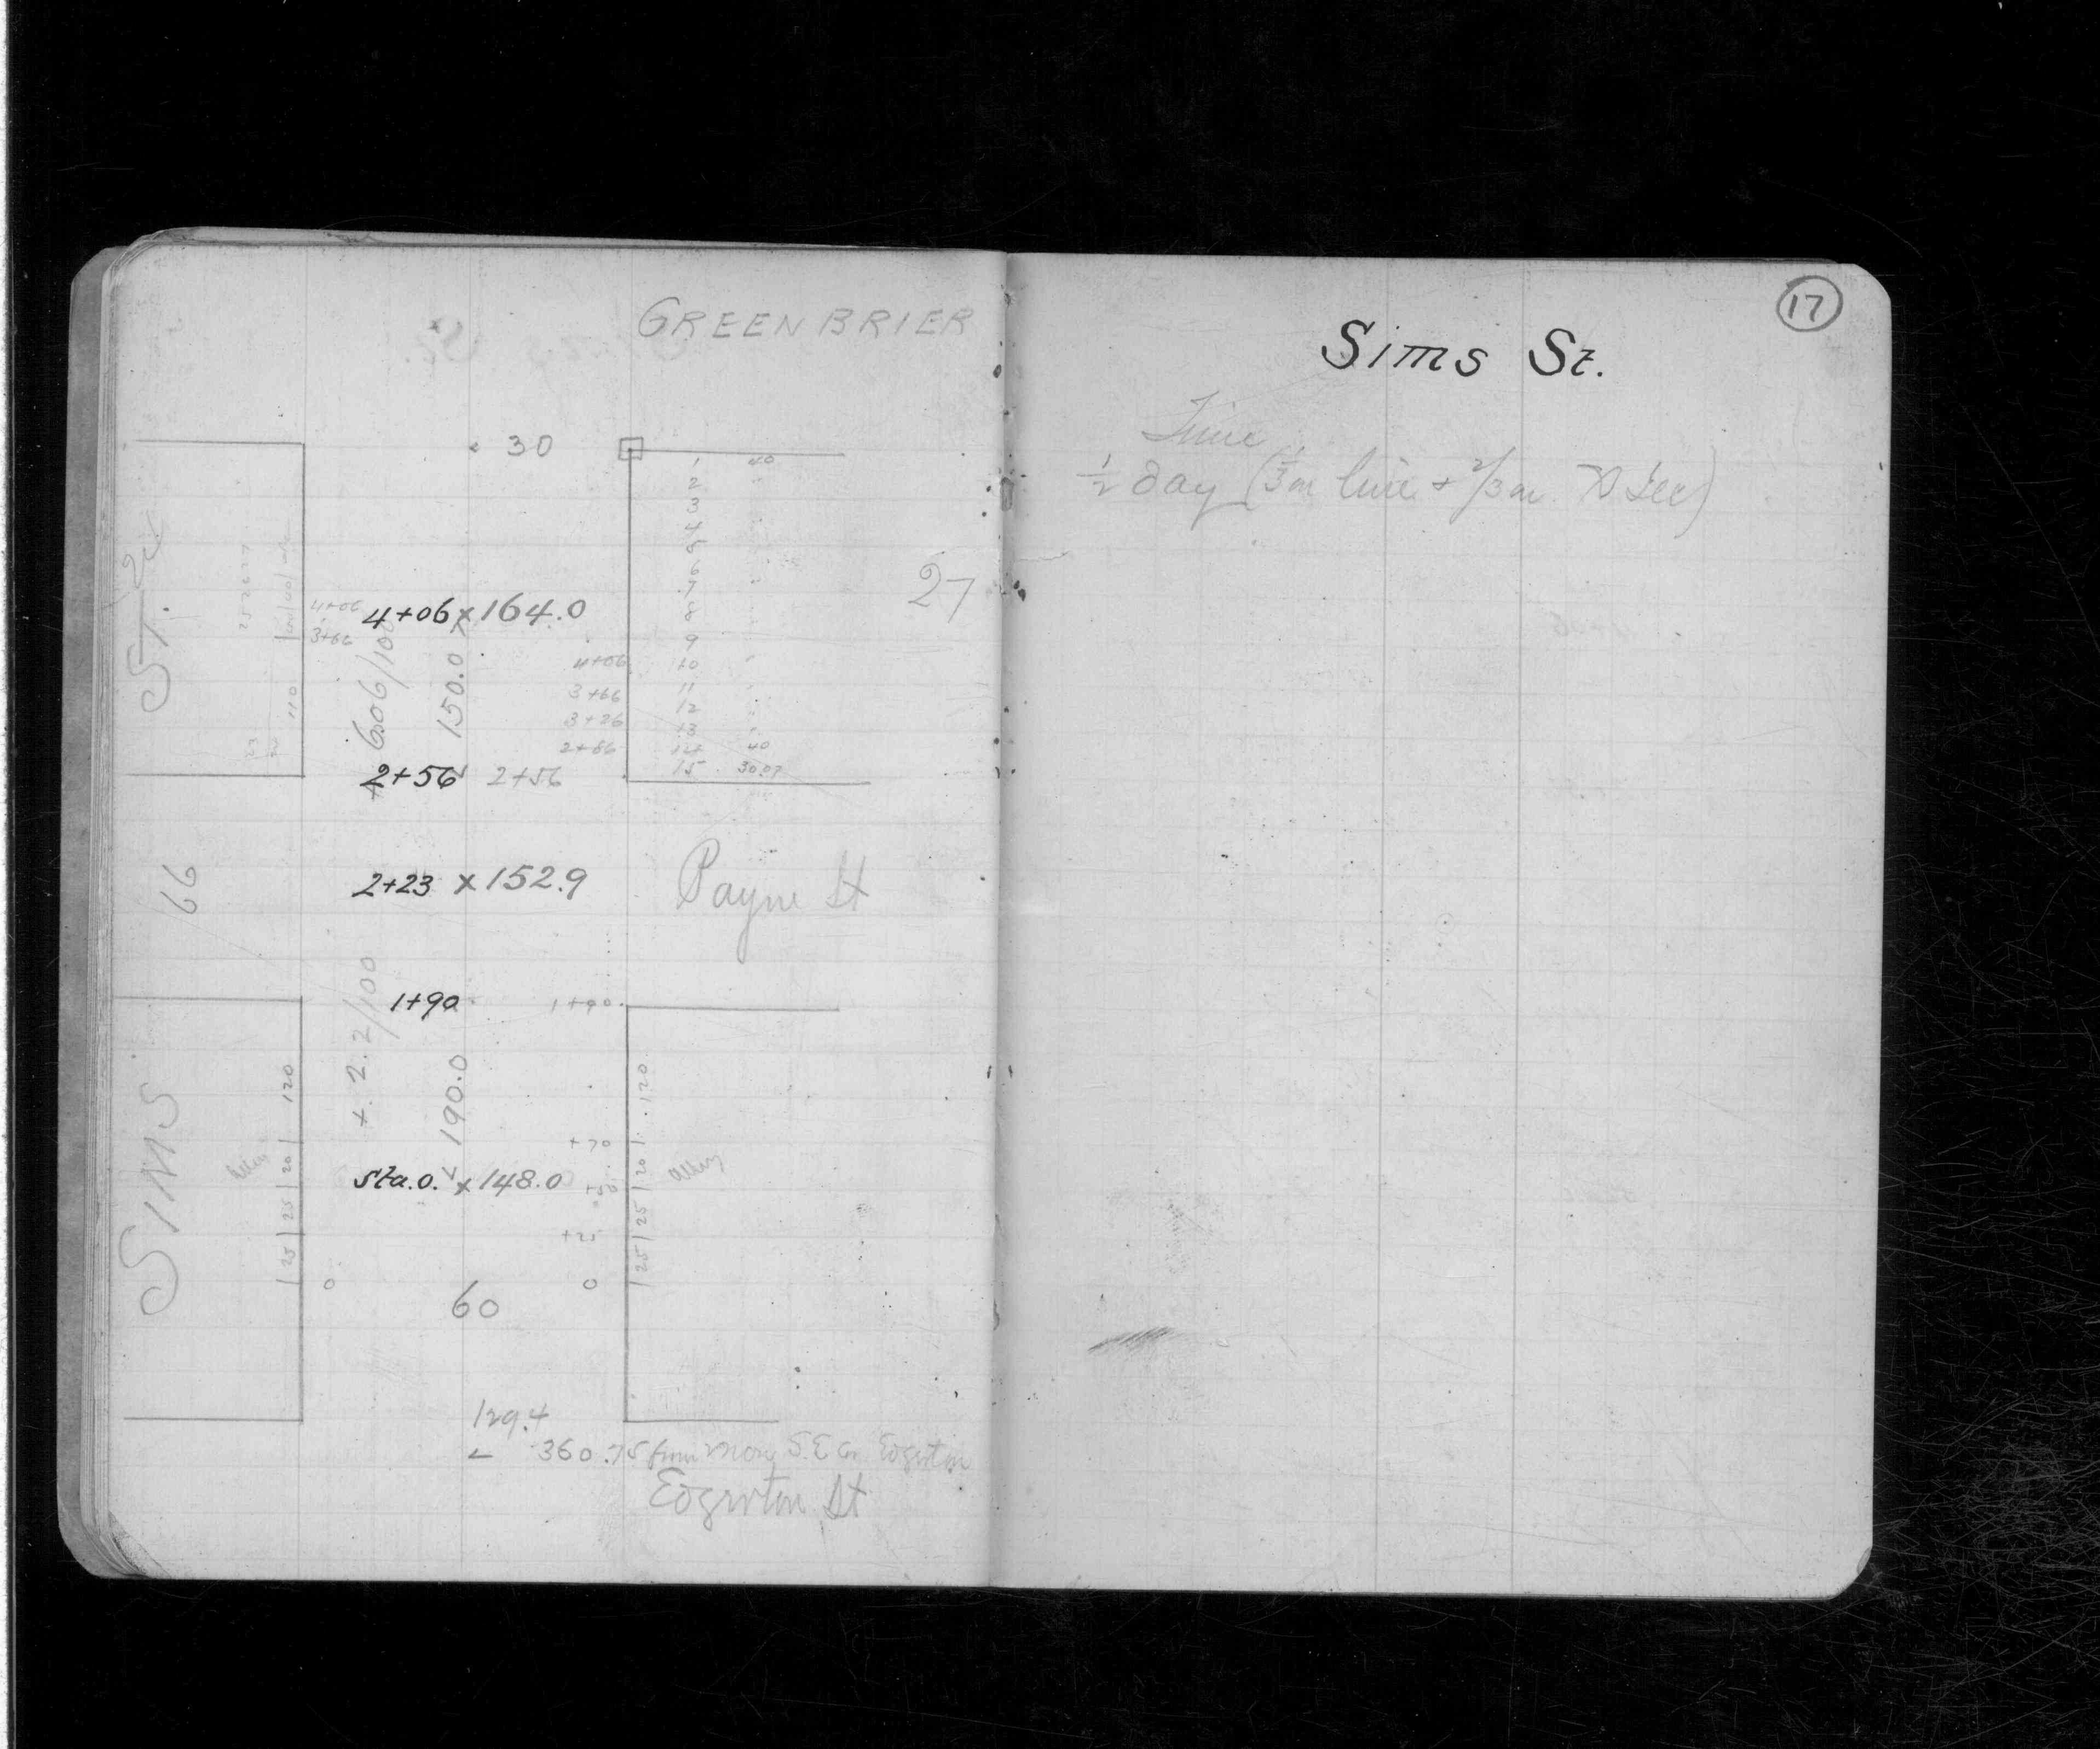 GREENBRIER
30
1 40
2 "
3
4
8
4+06 4+06 x 164.0
3+66
9
4+06 10
3+66 11
12
3+26 13
2+86 14 40
2+56 2+56 15 30.07
150.0
110
ST.
27
66
2+23 x 152.9
Payne St
1+90 1+90
+ 2.2/100
190.0
120
120
SIMS
+70
Sta.0. x 148.0 +50
Alley
Alley
25 | 25 | 20 |
25 | 25 | 20 |
+25
0 0
60
129.4
360.75 from mon S.E Cor Edgerton
Edgerton St
17
Sims St.
Time
1/2 day (1/3 on line + 2/3 on X Sec)